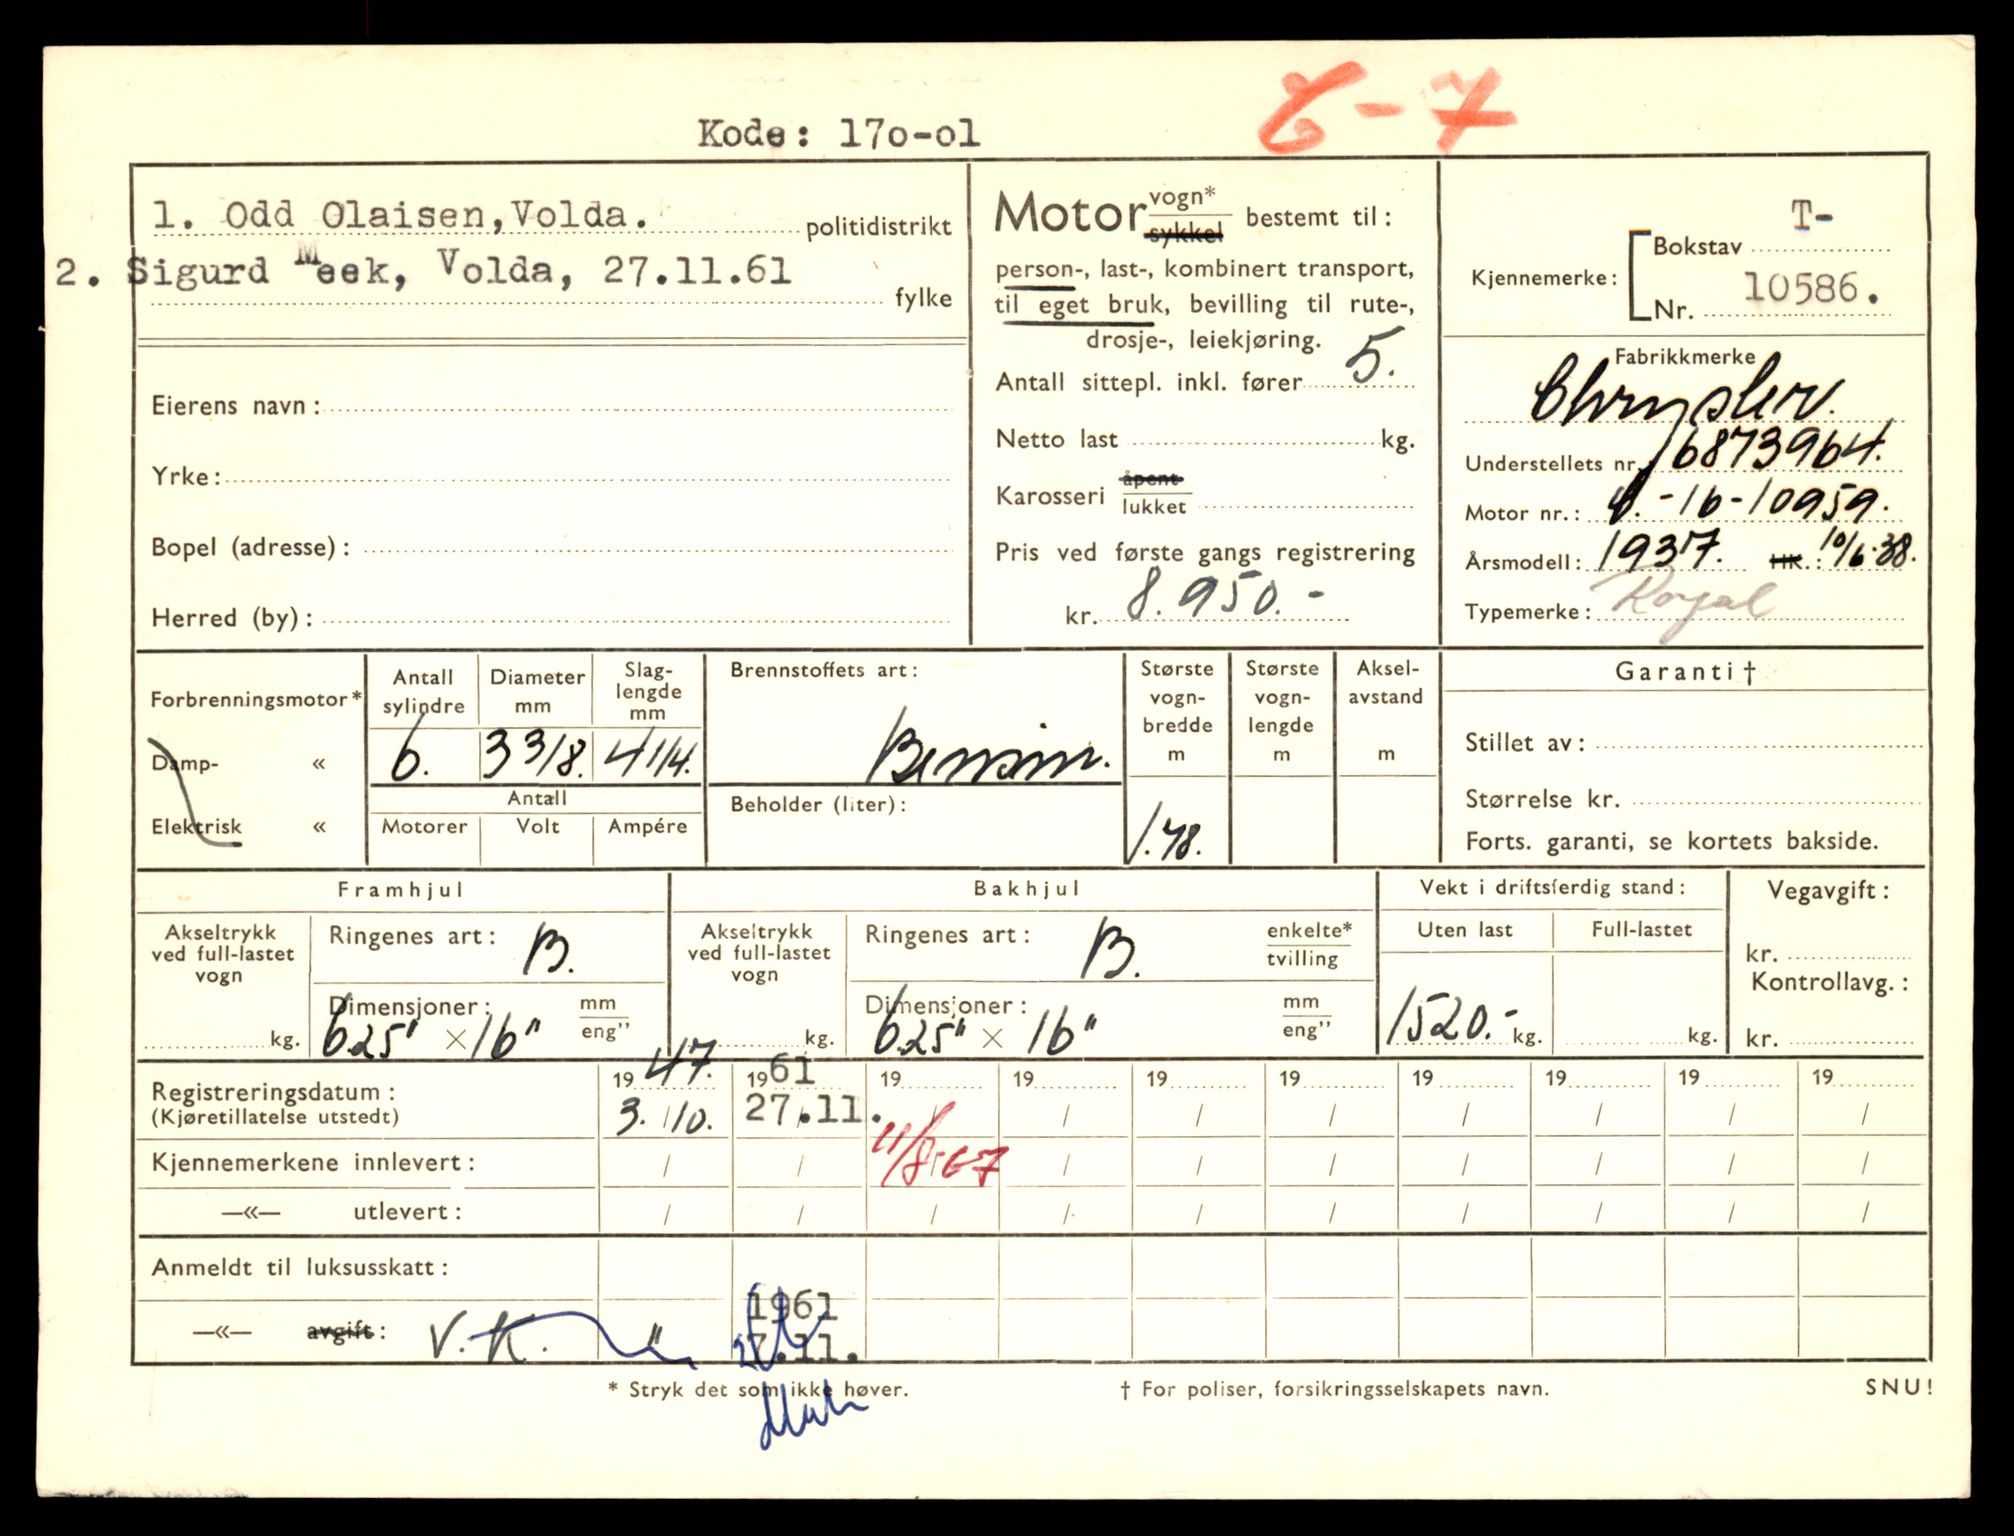 6-7
Kode: 17o-o1
1. Odd Olaisen, Volda. politidistrikt
2. Sigurd Meek, Volda, 27.11.61
fylke
Eierens navn:
Yrke:
Bopel (adresse):
Herred (by):
Motor vogn* sykkel bestemt til:
person-, last-, kombinert transport,
til eget bruk, bevilling til rute-,
drosje-, leiekjøring.
Antall sittepl. inkl. fører 5.
Netto last kg.
Karosseri åpent lukket
Pris ved første gangs registrering
kr. 8.950.-
Kjennemerke: Bokstav T-
Nr. 10586.
Fabrikkmerke
Chrysler.
Understellets nr. 6873964.
Motor nr.: C.-16-10959.
Årsmodell: 1937. HK.: 10/6.38.
Typemerke: Royal
Forbrenningsmotor*
Damp- «
Elektrisk «
Antall sylindre
6.
Diameter mm
3 3/8.
Slag-lengde mm
4 1/4.
Antall
Motorer Volt Ampére
Brennstoffets art:
Bensin.
Beholder (liter):
Største vogn-bredde m
1.78.
Største vogn-lengde m
Aksel-avstand m
Garanti †
Stillet av:
Størrelse kr.
Forts. garanti, se kortets bakside.
Framhjul
Akseltrykk ved full-lastet vogn
kg.
Ringenes art: B.
Dimensjoner: mm eng”
625" × 16"
Bakhjul
Akseltrykk ved full-lastet vogn
kg.
Ringenes art: B. enkelte* tvilling
Dimensjoner: mm eng”
625" × 16"
Vekt i driftsferdig stand:
Uten last Full-lastet
1520.- kg. kg.
Vegavgift:
kr.
Kontrollavg.:
kr.
Registreringsdatum: 19 47. 19 61 19 19 19 19 19 19 19 19
(Kjøretillatelse utstedt) 3. / 10. 27.11. / / / / / / / /
Kjennemerkene innlevert: / / 11/8-67 / / / / / / /
—«— utlevert: / / / / / / / / / /
Anmeldt til luksusskatt:
1961
—«— avgift: V.K. " 27.11.
* Stryk det som ikke høver. † For poliser, forsikringsselskapets navn. SNU!